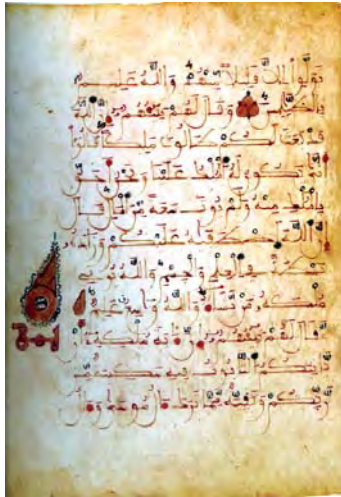 تولوا إلا قليلا منهم والله عليم
بالظلمين وقال لهم نبيهم إن الله
قد بعث لكم طالوت ملكا قالوا
أنى يكون له الملك علينا ونحن أحق
بالملك منه ولم يوت سعة من المال قال
إن الله اصطفيه عليكم وزاده
بسطة في العلم والجسم والله يوتي
ملكه من يشاء والله واسع عليم
وقال لهم نبيهم إن ءاية ملكه أن
ياتيكم التابوت فيه سكينة من
ربكم وبقية مما ترك ءال موسى وءال